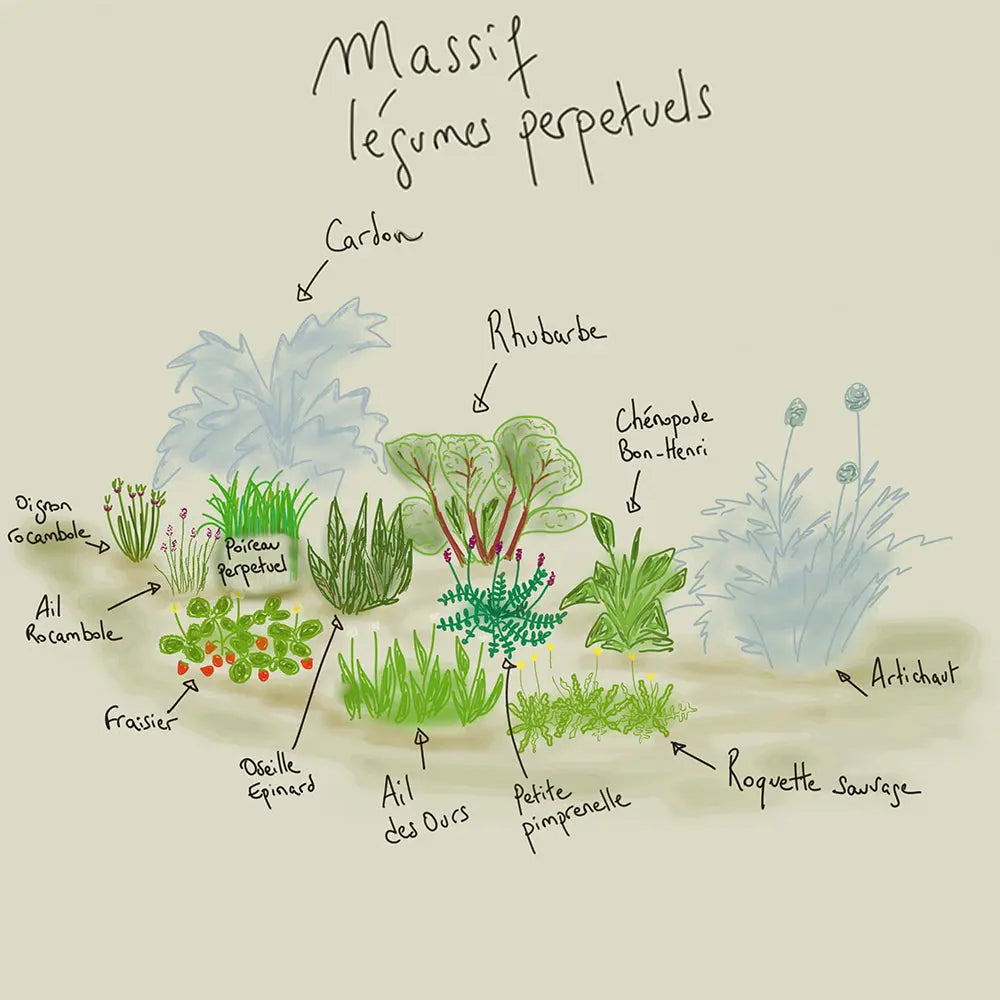 Massif
légumes perpetuels
Cardon
Rhubarbe
Chénopode
Bon-Henri
Oignon
rocambole
Poireau
perpetuel
Ail
Rocambole
Artichaut
Fraisier
Oseille
Epinard
Ail
des Ours
Petite
pimprenelle
Roquette sauvage